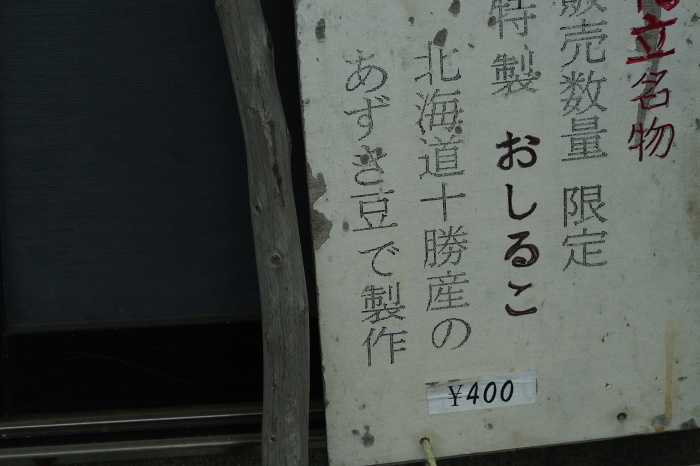 立名物
販売数量 限定
特製 おしるこ
北海道十勝産の
あずき豆で製作
¥400